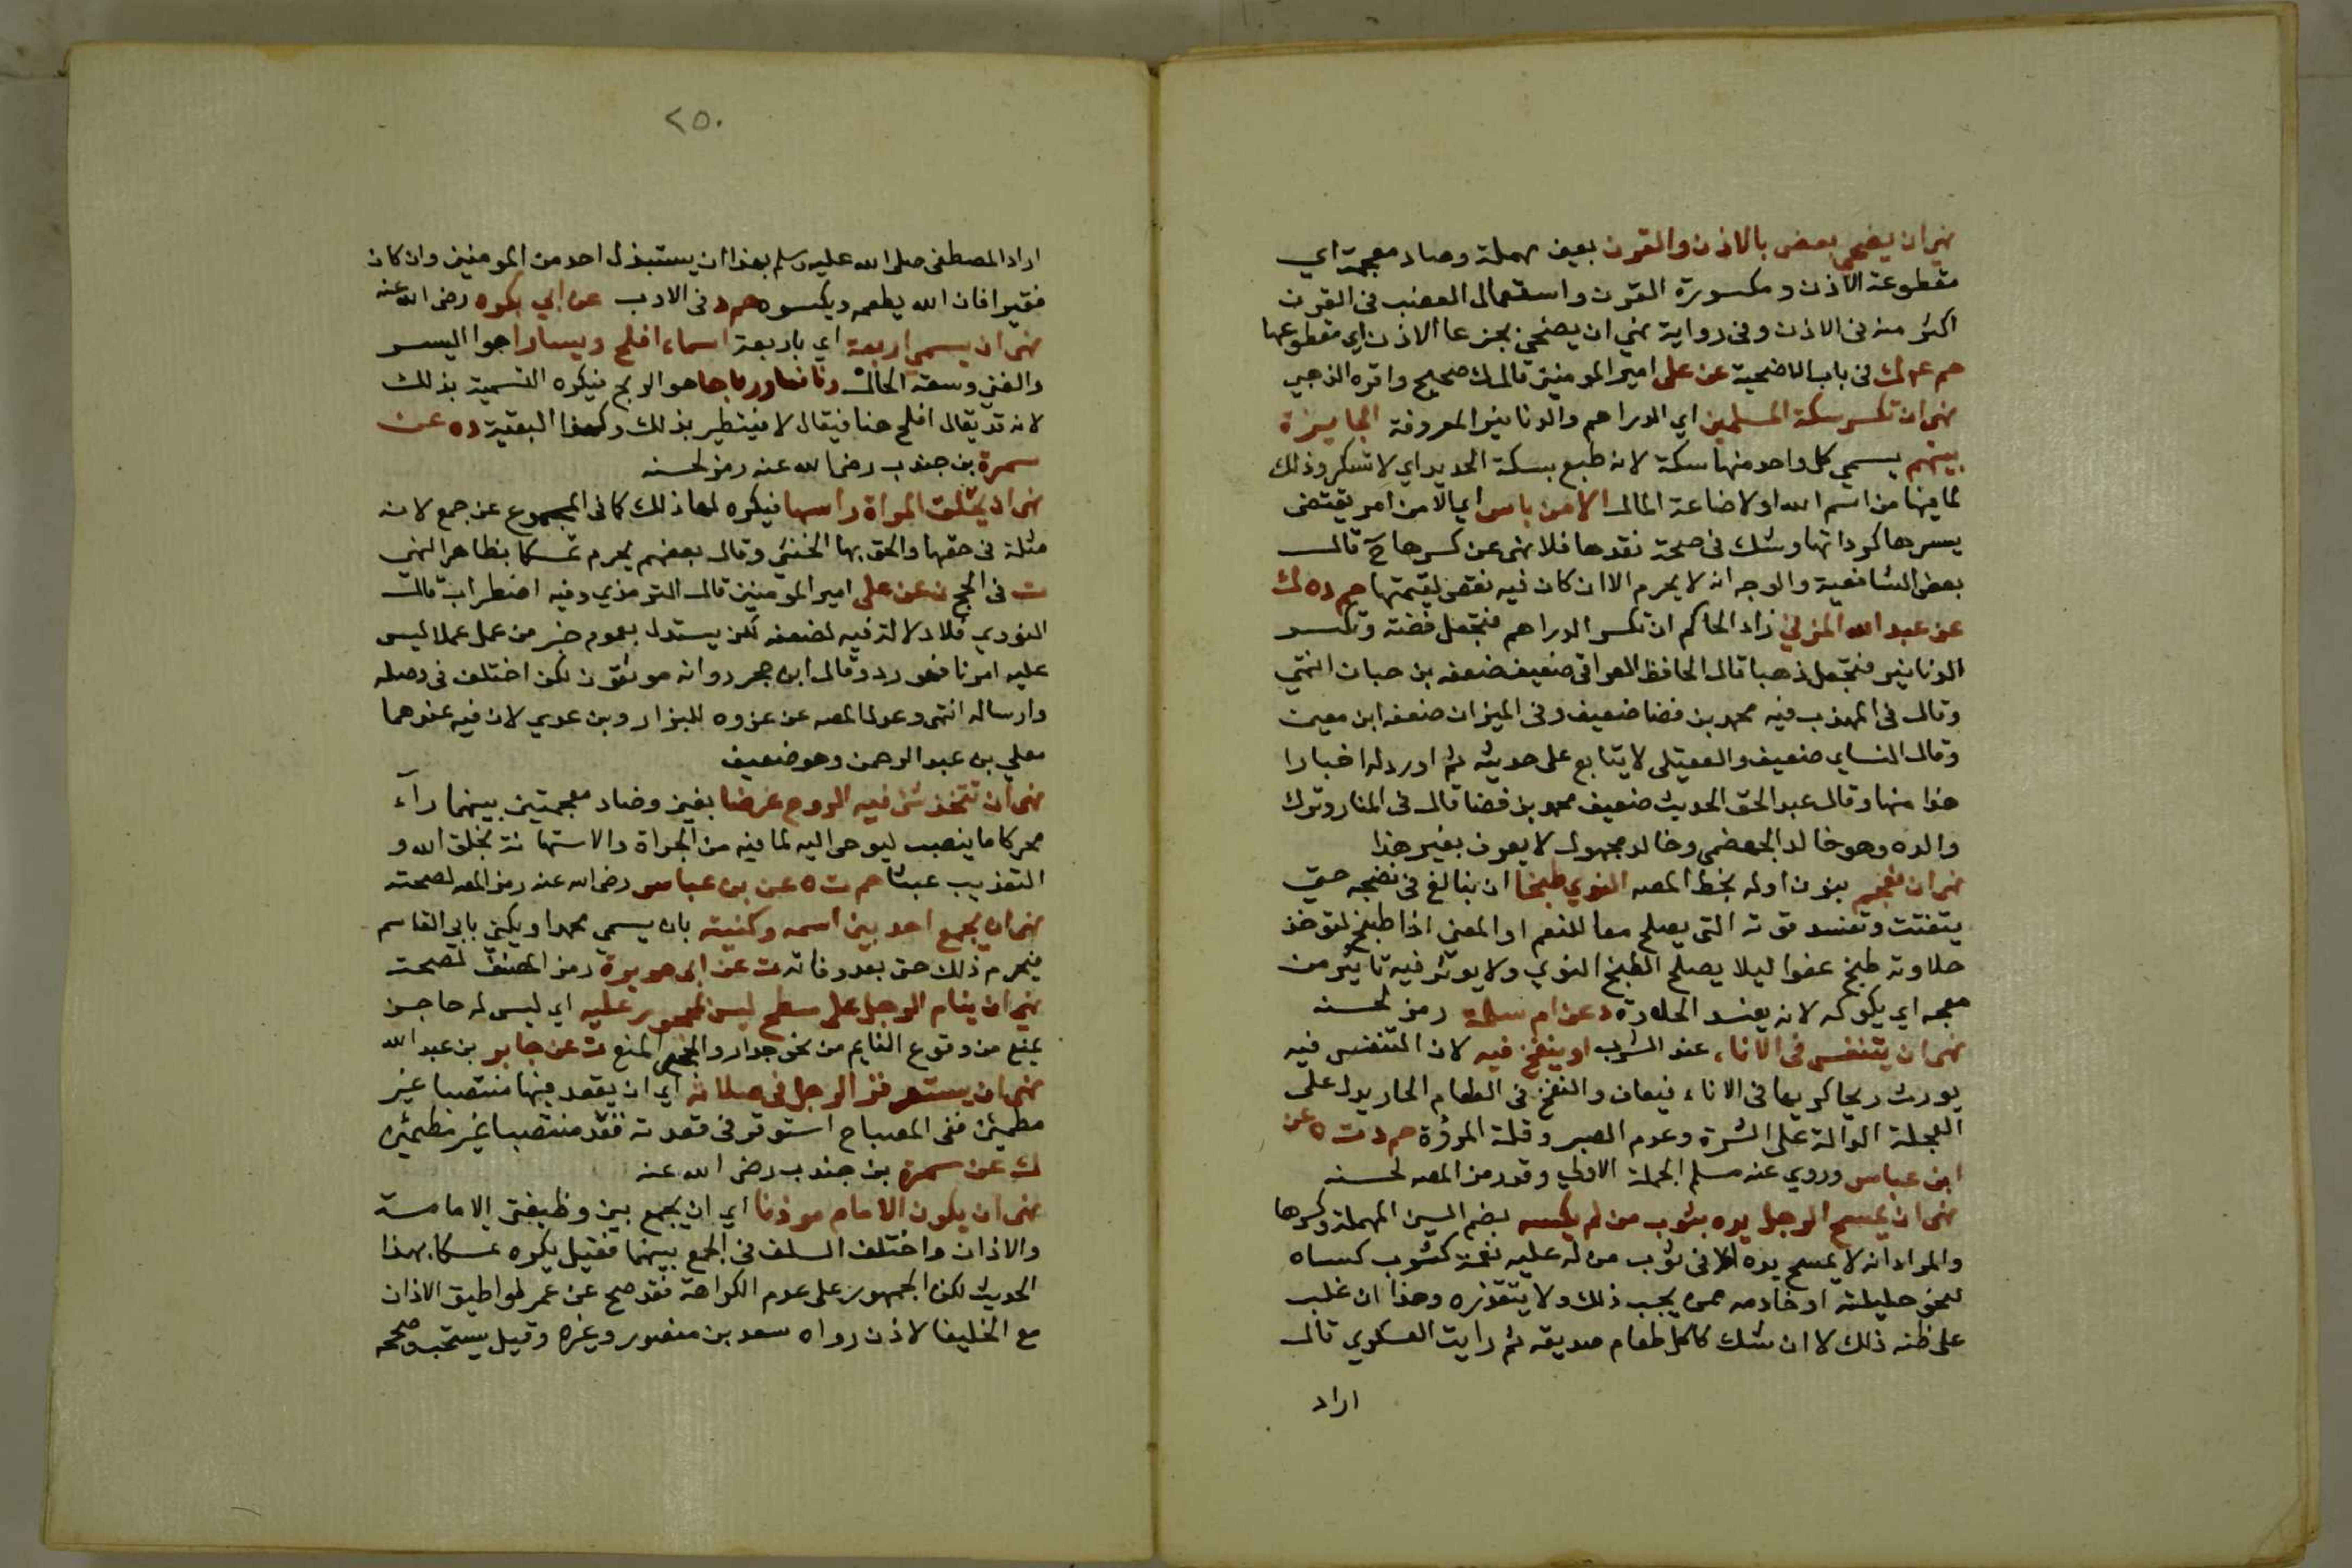 نهى ان يضحى بعضب بالاذن والقرن بعين مهملة وضاد معجمة اي
مقطوعة الاذن ومكسورة القرن واستعمال العضب في القرن
اكثر منه في الاذن وفي رواية نهي ان يضحى بجزعا الاذن اي مقطوعها
حم ع ك في باب الاضحية عن علي امير المومنين قال ك صحيح واقره الذهبي
نهى ان تكسر سكة المسلمين اي الدراهم والدنانير المعروفة الجايزة
بينهم يسمي كل واحد منها سكة لانه طبع بسكة الحديد اي لا تنكر وذلك
لما فيها من اسم الله او لاضاعة المال الا من باس اي الا من امر يقتضى
كسرها كرداتها وشك في صحة نقدها فلا نهى عن كسرها ح قال
بعض الشافعية والوجه انه لا يحرم الا ان كان فيه نقص لقيمتها حم د ه ك
عن عبد الله المزني زاد الحاكم ان تكسر الدراهم فتجعل فضة وتكسر
الدنانير فتجعل ذهبا قال الحافظ العراقي ضعيف ضعفه بن حبان انتهى
وقال في المهذب فيه محمد بن فضا ضعيف وفي الميزان ضعفه ابن معين
وقال النساي ضعيف والعقيلي لا يتابع على حديثه ثم اورد له اخبارا
هذا منها وقال عبد الحق الحديث ضعيف محمد بن فضا قال في المنار وترك
والده وهو خالد الجهضمي وخالد مجهول لا يعرف بغير هذا
نهى ان نعجم بنون اوله بخط المص النوي طبخا ان نبالغ في نضجه حتى
يتفتت وتفسد قوته التي يصلح معا للنعم او المعنى اذا طبخ لتوخذ
حلاوته طبخ عفوا ليلا يصلح الطبخ النوي ولا يوثر فيه تاثير من
معجمه اي يكوكه لانه يفسد الحلاوة د عن ام سلمة رمز لحسنه
نهى ان يتنفس في الاناء عند الشرب او ينفخ فيه لان المتنفس فيه
يورث ريحا كريها في الاناء فيعاف والنفخ في الطعام الحار يدل على
العجلة الدالة على الشره وعدم الصبر وقلة المروة حم د ت ه عن
ابن عباس وروي عنه مسلم الجملة الاولي وقد رمز المص لحسنه
نهى ان يمسح الرجل يده بثوب من لم يكسه بضم السين المهملة وكسرها
والمراد انه لا يمسح يده الا في ثوب من له عليه نعمة كثوب كساه
لنحو حليلته او خادمه ممن يحب ذلك ولا يتقذره وهذا ان غلب
على ظنه ذلك لا ان شك كاكل طعام صديقه ثم رايت العسكري قال
اراد
٢٥٠
اراد المصطفى صلى الله عليه وسلم بهذا ان يستبذل احد من المومنين وان كان
فقيرا فان الله يطعمه ويكسوه حم د في الادب عن ابي بكره رضى الله عنه
نهى ان يسمي اربعة اي باربعة اسماء افلح ويسارا هوا اليسر
والغنى وسعة الحال ونافعا ورباحا هو الربح فيكره التسمية بذلك
لانه قد يقال افلح هنا فيقال لا فيتطير بذلك وكهذا البقية د ه عن
سمرة بن جندب رضى الله عنه رمز لحسنه
نهى ان تحلق المراة راسها فيكره لها ذلك كما في المجموع عن جمع لانه
مثلة في حقها والحق بها الخنثى وقال بعضهم يحرم تمسكا بظاهر النهي
ت في الحج ن عن علي امير المومنين قال الترمذي وفيه اضطراب قال
النووي فلا دلالة فيه لضعفه لكن يستدل بعموم خبر من عمل عملا ليس
عليه امرنا فهو رد وقال ابن حجر رواته موثقون لكن اختلف في وصله
وارساله انتهى وعدل المص عن عزوه للبزار وبن عدي لان فيه عندهما
معلي بن عبد الرحمن وهو ضعيف
نهى ان تتخذ شئ فيه الروح غرضا بغين وضاد معجمتين بينهما رآء
محركا ما ينصب ليرمى اليه لما فيه من الجراة والاستهانة بخلق الله و
التعذيب عبثا حم ت ه عن بن عباس رضى الله عنه رمز المص لصحته
نهى ان يجمع احد بين اسمه وكنيته بان يسمي محمدا ويكني بابي القاسم
فيحرم ذلك حتى بعد وفاته ت عن ابي هريرة رمز المصنف لصحته
نهى ان ينام الرجل على سطح ليس بمحجور عليه اي ليس له حاجز
يمنع من وقوع النايم من نحو جدار والحجر المنع ت عن جابر بن عبد الله
نهى ان يستوفز الرجل في صلاته اي ان يقعد فيها منتصبا غير
مطمئن ففي المصباح استوفز في قعدته قعد منتصبا غير مطمئن
ك عن سمرة بن جندب رضى الله عنه
نهى ان يكون الامام موذنا اي ان يجمع بين وظيفتى الامامة
والاذان واختلف السلف في الجمع بينهما فقيل يكره تمسكا بهذا
الحديث لكن الجمهور على عدم الكراهة فقد صح عن عمر لو اطيق الاذان
مع الخليفا لاذن رواه سعد بن منصور وغيره وقيل يستحب وصححه